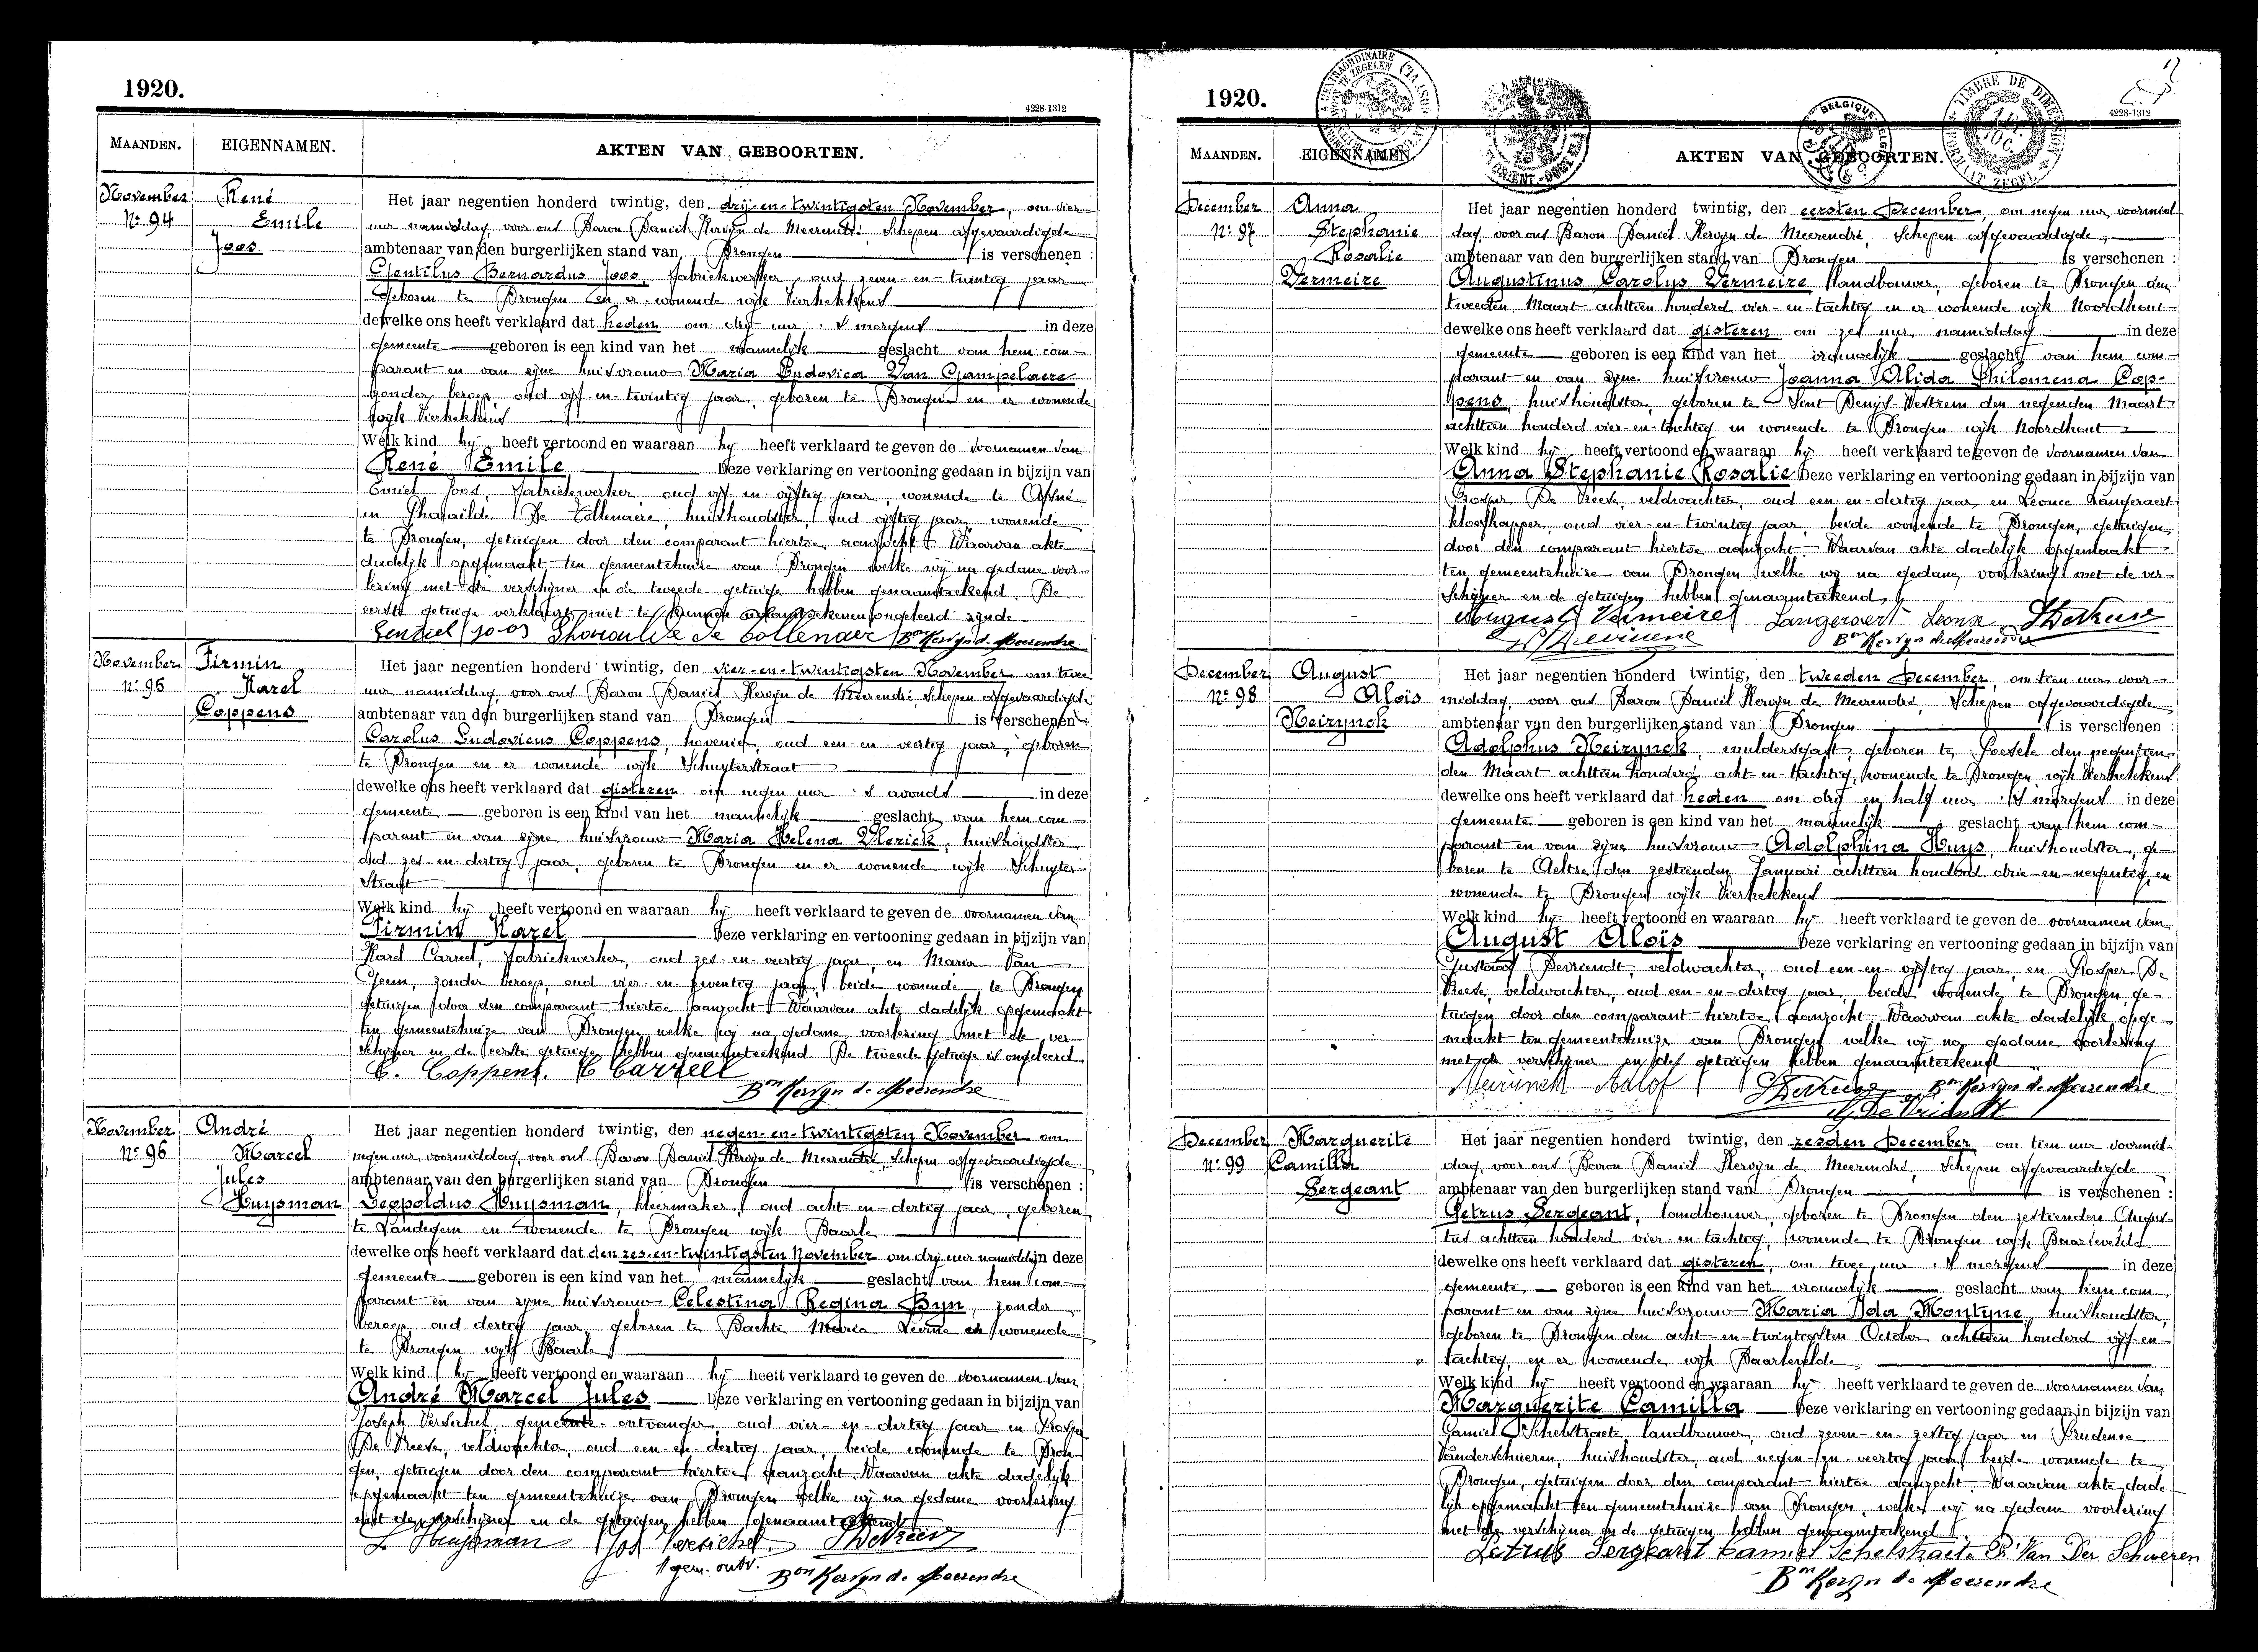 1920.
4228-1312
MAANDEN.
EIGENNAMEN.
AKTEN VAN GEBOORTEN.
November
No. 94
René
Emile
Joos
Het jaar negentien honderd twintig, den dry-en-twintigsten November, om vier
uur namiddag, voor ons Baron Daniël Kervyn de Meerendré, Schepen afgevaardigde
ambtenaar van den burgerlijken stand van Drongen is verschenen :
Gentilus Bernardus Joos, fabriekwerker, oud zeven-en-twintig jaar
geboren te Drongen en er wonende wijk Vierhekkens
dewelke ons heeft verklaard dat heden om dry uur 's morgens in deze
gemeente geboren is een kind van het mannelijk geslacht van hem com-
parant en van zijne huisvrouw Maria Ludovica Van Gampelaere
zonder beroep, oud vijf-en-twintig jaar, geboren te Drongen en er wonende
wijk Vierhekkens
Welk kind hij heeft vertoond en waaraan hij heeft verklaard te geven de voornamen van
René Emile Deze verklaring en vertooning gedaan in bijzijn van
Emiel Joos, fabriekwerker, oud vijf-en-vijftig jaar, wonende te Afsné
en Pharaïlde De Collenaere, huishoudster, oud vijftig jaar, wonende
te Drongen, getuigen door den comparant hiertoe aanzocht. Waarvan akte
dadelijk opgemaakt ten gemeentehuize van Drongen welke wij na gedane voor-
lezing met de verschijner en de tweede getuige hebben genaamteekend. De
eerste getuige verklaart niet te kunnen naamteekenen ongeleerd zijnde
Gentiel Joos De Collenaer Bon Kervyn de Meerendre
November
No. 95
Firmin
Karel
Coppens
Het jaar negentien honderd twintig, den vier-en-twintigsten November om twee
uur namiddag, voor ons Baron Daniël Kervyn de Meerendré, Schepen afgevaardigde
ambtenaar van den burgerlijken stand van Drongen is verschenen :
Carolus Ludovicus Coppens, hovenier, oud een-en-veertig jaar, geboren
te Drongen en er wonende wijk Schuyterstraat
dewelke ons heeft verklaard dat gisteren om negen uur 's avonds in deze
gemeente geboren is een kind van het mannelijk geslacht van hem com-
parant en van zijne huisvrouw Maria Helena Vlerick, huishoudster
oud zes-en-dertig jaar, geboren te Drongen en er wonende wijk Schuyter-
straat
Welk kind hij heeft vertoond en waaraan hij heeft verklaard te geven de voornamen van
Firmin Karel Deze verklaring en vertooning gedaan in bijzijn van
Karel Carreel, fabriekwerker, oud zes-en-veertig jaar, en Maria Van
zonder beroep, oud vier en zeventig jaar, beide wonende te Drongen
getuigen door den comparant hiertoe aanzocht. Waarvan akte dadelijk opgemaakt
ten gemeentehuize van Drongen welke wij na gedane voorlezing met de ver-
schijner en de eerste getuige hebben genaamteekend. De tweede getuige is ongeleerd.
C. Coppens, C Carreel
Bon Kervyn de Meerendre
November
No. 96
André
Marcel
Jules
Huysman
Het jaar negentien honderd twintig, den negen-en-twintigsten November om
negen uur voormiddag, voor ons Baron Daniël Kervyn de Meerendré, Schepen afgevaardigde
ambtenaar van den burgerlijken stand van Drongen is verschenen :
Leopoldus Huysman, kleermaker, oud acht-en-dertig jaar, geboren
te Landegem en wonende te Drongen wijk Baarle
dewelke ons heeft verklaard dat den zes-en-twintigsten November om dry uur namiddag in deze
gemeente geboren is een kind van het mannelijk geslacht van hem com-
parant en van zijne huisvrouw Celestina Regina Byn, zonder
beroep, oud dertig jaar, geboren te Bachte Maria Leerne en wonende
te Drongen wijk Baarle
Welk kind hij heeft vertoond en waaraan hij heeft verklaard te geven de voornamen van
André Marcel Jules Deze verklaring en vertooning gedaan in bijzijn van
Joseph Versichel, gemeente-ontvanger, oud vier-en-dertig jaar en Prosper
De Vreese, veldwachter, oud een-en-dertig jaar, beide wonende te Dron-
gen, getuigen door den comparant hiertoe aanzocht. Waarvan akte dadelijk
opgemaakt ten gemeentehuize van Drongen welke wij na gedane voorlezing
met de verschijner en de getuigen hebben genaamteekend
L Huysman Jos Versichel
gem. ontv. Bon Kervyn de Meerendre
1920.
4228-1312
MAANDEN.
EIGENNAMEN.
AKTEN VAN GEBOORTEN.
December
No. 97
Anna
Stephanie
Rosalie
Vermeire
Het jaar negentien honderd twintig, den eersten December, om negen uur voormid-
dag, voor ons Baron Daniël Kervyn de Meerendré, Schepen afgevaardigde,
ambtenaar van den burgerlijken stand van Drongen is verschenen :
Augustinus Carolus Vermeire, landbouwer, geboren te Drongen den
tweeden Maart achttien honderd vier-en-tachtig en er wonende wijk Noordhout
dewelke ons heeft verklaard dat gisteren om zes uur namiddag in deze
gemeente geboren is een kind van het vrouwelijk geslacht van hem com-
parant en van zijne huisvrouw Joanna Alida Philomena Cop-
pens, huishoudster, geboren te Sint Denijs Westrem den negenden Maart
achttien honderd vier-en-tachtig en wonende te Drongen wijk Noordhout
Welk kind hij heeft vertoond en waaraan hij heeft verklaard te geven de voornamen van
Anna Stephanie Rosalie Deze verklaring en vertooning gedaan in bijzijn van
Prosper De Vreese, veldwachter, oud een-en-dertig jaar en Leonce Langeraert
kloefkapper, oud vier-en-twintig jaar, beide wonende te Drongen, getuigen
door den comparant hiertoe aanzocht. Waarvan akte dadelijk opgemaakt
ten gemeentehuize van Drongen welke wij na gedane voorlezing met de ver-
schijner en de getuigen hebben genaamteekend
August Vermeire Langeraert Leonce
Bon Kervyn de Meerendre
December
No. 98
August
Aloïs
Neirynck
Het jaar negentien honderd twintig, den tweeden December, om tien uur voor-
middag, voor ons Baron Daniël Kervyn de Meerendré, Schepen afgevaardigde
ambtenaar van den burgerlijken stand van Drongen is verschenen :
Adolphus Neirynck, muldersgast, geboren te Poesele den negentien-
den Maart achttien honderd acht-en-tachtig, wonende te Drongen wijk Vierhekkens
dewelke ons heeft verklaard dat heden om dry en half uur 's morgens in deze
gemeente geboren is een kind van het mannelijk geslacht van hem com-
parant en van zijne huisvrouw Adolphina Huys, huishoudster, ge-
boren te Aeltre den zestienden Januari achttien honderd drie-en-negentig, en
wonende te Drongen wijk Vierhekkens
Welk kind hij heeft vertoond en waaraan hij heeft verklaard te geven de voornamen van
August Aloïs Deze verklaring en vertooning gedaan in bijzijn van
Gustaaf Devriendt, veldwachter, oud een-en-vijftig jaar, en Prosper De
Vreese, veldwachter, oud een-en-dertig jaar, beide wonende te Drongen, ge-
tuigen door den comparant hiertoe aanzocht. Waarvan akte dadelijk opge-
maakt ten gemeentehuize van Drongen welke wij na gedane voorlezing
met de verschijner en des getuigen hebben genaamteekend
Neirynck Adolf Bon Kervyn de Meerendre
De Vriendt
December
No. 99
Marguerite
Camilla
Sergeant
Het jaar negentien honderd twintig, den zesden December om tien uur voormid-
dag, voor ons Baron Daniël Kervyn de Meerendré, Schepen afgevaardigde
ambtenaar van den burgerlijken stand van Drongen is verschenen :
Petrus Sergeant, landbouwer, geboren te Drongen den zestienden Augus-
tus achttien honderd vier-en-tachtig, wonende te Drongen wijk Baarlevelde
dewelke ons heeft verklaard dat gisteren, om twee uur 's morgens in deze
gemeente geboren is een kind van het vrouwelijk geslacht van hem com-
parant en van zijne huisvrouw Maria Ida Montyne, huishoudster,
geboren te Drongen den acht-en-twintigsten October achttien honderd vijf-en-
tachtig, en er wonende wijk Baarlevelde
Welk kind hij heeft vertoond en waaraan hij heeft verklaard te geven de voornamen van
Marguerite Camilla Deze verklaring en vertooning gedaan in bijzijn van
Camiel Schelstraete, landbouwer, oud zeven-en-zestig jaar en Prudence
Vanderschueren, huishoudster, oud negen-en-veertig jaar, beide wonende te
Drongen, getuigen door den comparant hiertoe aanzocht. Waarvan akte dade-
lijk opgemaakt ten gemeentehuize van Drongen, welke wij na gedane voorlezing
met de verschijner en de getuigen hebben genaamteekend
Petrus Sergeant Camiel Schelstraete P. Van Der Schueren
Bon Kervyn de Meerendre